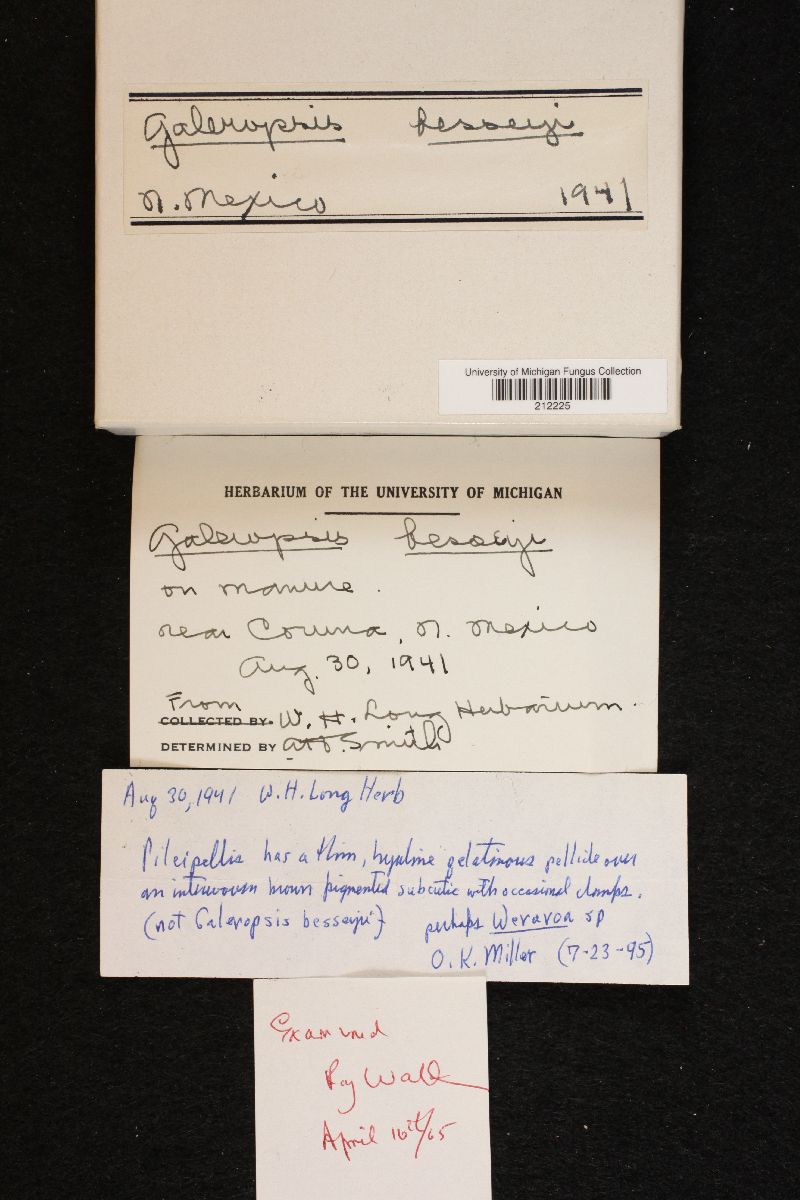 Galeropsis besseyi
N. Mexico 1941
University of Michigan Fungus Collection
212225
HERBARIUM OF THE UNIVERSITY OF MICHIGAN
Galeropsis besseyi
on manure.
near Corona, N. Mexico
Aug. 30, 1941
From
COLLECTED BY W. H. Long Herbarium.
DETERMINED BY Smith
Aug 30, 1941 W.H. Long Herb
Pileipellis has a thin, hyaline gelatinous pellicle over
an interwoven brown pigmented subcutis with occasional clamps.
(not Galeropsis besseyi) perhaps Weraroa sp
O.K. Miller (7-23-95)
Examined
Roy Wall
April 16th/65